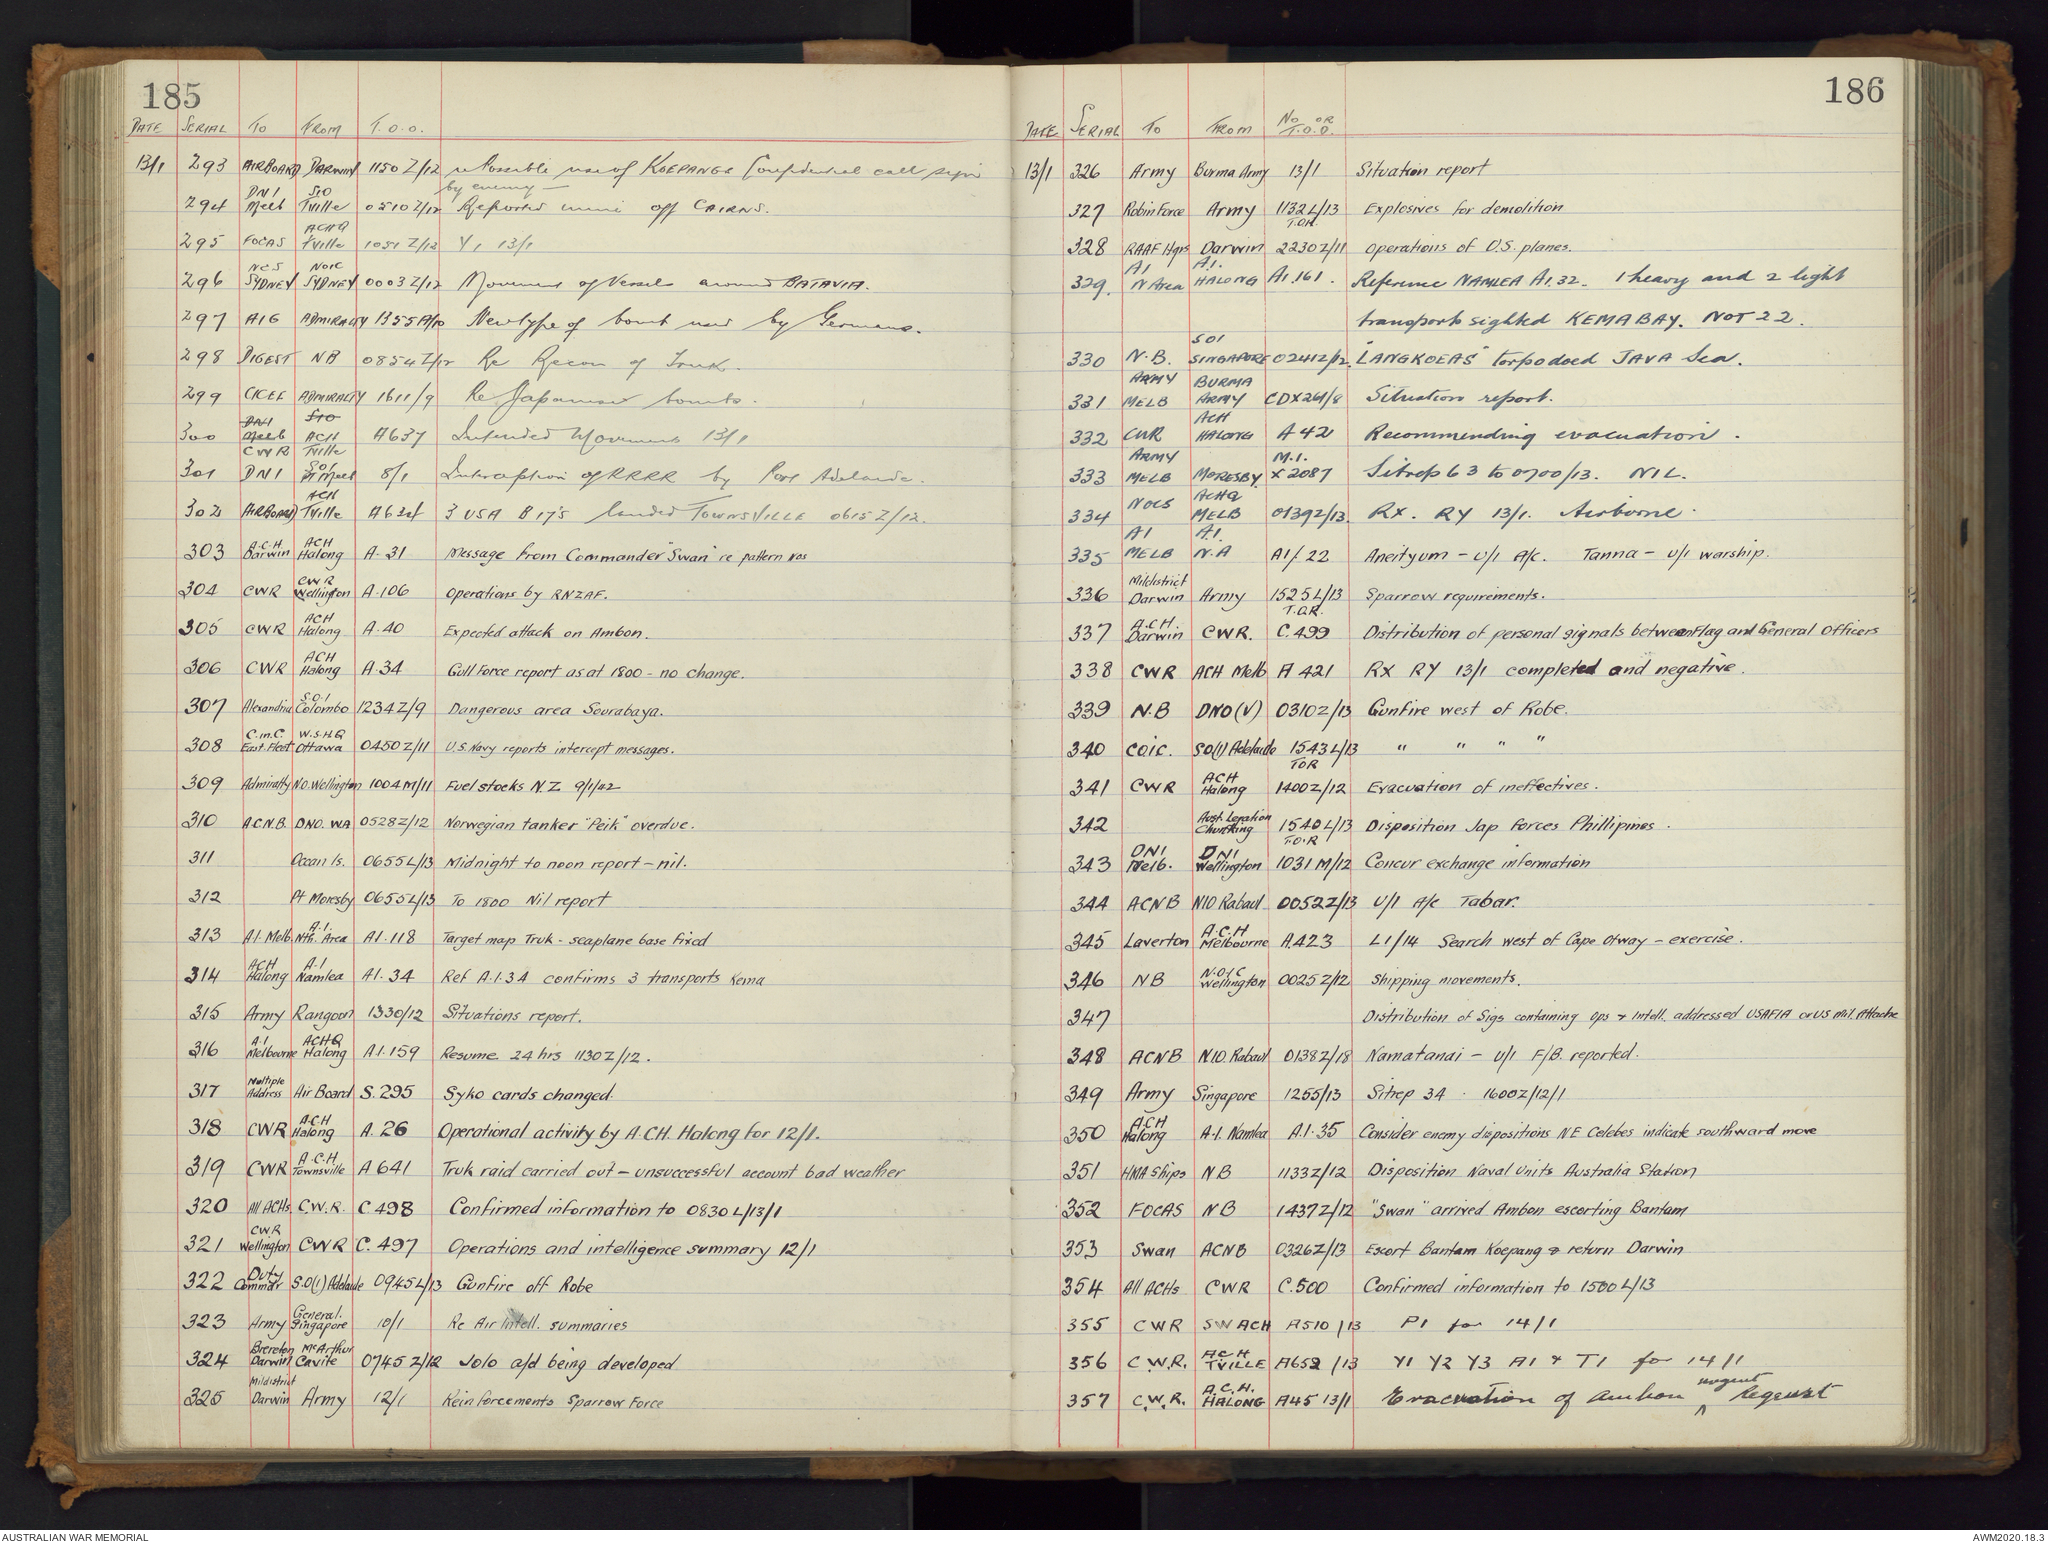 185
DATE SERIAL TO FROM T.O.O.
13/1 293 AIRBOARD DARWIN 1150Z/12 re Possible use of KOEPANGS Confidential call sign
by enemy —
294 DNI Melb SIO Tville 0510Z/12 Reported mine off CAIRNS.
295 FOCAS ACHQ Tville 1051Z/12 Y1 13/1
296 NCS SYDNEY NOIC SYDNEY 0003Z/12 Movement of Vessels around BATAVIA.
297 AIG ADMIRALTY 1355A/10 New type of bomb used by Germans.
298 DIGEST NB 0854Z/12 Re Recon of Truk.
299 CICEF ADMIRALTY 1611/9 Re Japanese bombs.
300 DNI Melb CWR SIO ACH Tville A637 Intended Movements 13/1
301 DNI S.O.I. 8/1 Interception of RRRR by Port Adelaide.
302 AIRBOARD ACH Tville 3 USA B17's landed TOWNSVILLE 0615Z/12.
303 A.C.H. Darwin ACH Halong A.31 Message from Commander "Swan" re pattern nos
304 CWR CWR Wellington A.106 Operations by RNZAF.
305 CWR ACH Halong A.40 Expected attack on Ambon.
306 CWR ACH Halong A.34 Gull Force report as at 1800 - no change.
307 Alexandria S.O.I Colombo 1234Z/9 Dangerous area Sourabaya.
308 C.in.C. East. Fleet W.S.H.Q Ottawa 0450Z/11 U.S. Navy reports intercept messages.
309 Admiralty N.O. Wellington 1004M/11 Fuel stocks NZ 9/1/42
310 A.C.N.B. DNO. WA 0528Z/12 Norwegian tanker "Peik" overdue.
311 Ocean Is. 0655L/13 Midnight to noon report - nil.
312 Pt Moresby 0655L/13 To 1800 Nil report
313 A.I. Melb A.I. Nth. Area A1.118 Target map Truk - seaplane base fixed
314 ACH Halong A.I Namlea A1.34 Ref A.1.34 confirms 3 transports Kema
315 Army Rangoon 1330/12 Situations report.
316 A.I Melbourne ACHQ Halong A.1.159 Resume 24 hrs 1130Z/12.
317 Multiple Address Air Board S.295 Syko cards changed.
318 CWR A.C.H Halong A.26 Operational activity by A.C.H. Halong for 12/1.
319 CWR A.C.H Townsville A 641 Truk raid carried out - unsuccessful account bad weather
320 All ACHs C.W.R. C.498 Confirmed information to 0830L/13/1
321 CWR Wellington CWR C.497 Operations and intelligence summary 12/1
322 Duty Commdr S.O(I) Adelaide 0945L/13 Gunfire off Robe
323 Army General. Singapore 10/1 Re Air Intell. summaries
324 Brereton Darwin McArthur Cavite 0745Z/12 Jolo a/d being developed
325 Mildistrict Darwin Army 12/1 Reinforcements Sparrow Force
186
DATE SERIAL TO FROM No OR T.O.O.
13/1 326 Army Burma Army 13/1 Situation report
327 Robin Force Army 1132L/13 T.O.R. Explosives for demolition
328 RAAF Hqrs Darwin 2230Z/11 Operations of U.S. planes.
329. A1 N Area A.1. HALONG A1.161. Reference NAMLEA A1.32. 1 heavy and 2 light
transports sighted KEMA BAY. NOT 22.
330 N.B. SOI SINGAPORE 0241Z/12. "LANGKOEAS" torpedoed JAVA Sea.
331 ARMY MELB BURMA ARMY CDX261/8 Situation report.
332 CWR ACH HALONG A42 Recommending evacuation.
333 ARMY MELB MORESBY M.I. X2087 Sitrep 63 to 0700/13. NIL.
334 NOCS ACHQ MELB 0139Z/13. RX. RY 13/1. Airborne.
335 A1 MELB A.1. N.A A1/.22 Aneityum - U/I A/c. Tanna - U/I warship.
336 Mildistrict Darwin Army 1525L/13 T.O.R. Sparrow requirements.
337 A.C.H. Darwin CWR. C.499 Distribution of personal signals between Flag and General Officers
338 CWR ACH Melb A 421 RX RY 13/1 completed and negative.
339 N.B DNO(V) 0310Z/13 Gunfire west of Robe.
340 COIC. SO(I) Adelaide 1543L/13 TOR " " " "
341 CWR ACH Halong 1400Z/12 Evacuation of ineffectives.
342 Aust. Legation Chunking 1540L/13 T.O.R Disposition Jap Forces Phillipines.
343 DNI Melb. DNI Wellington 1031M/12 Concur exchange information
344 ACNB NIO Rabaul 0052Z/13 U/I A/c Tabar.
345 Laverton A.C.H Melbourne A.423 L1/14 Search west of Cape Otway - exercise.
346 NB N.O.I.C Wellington 0025Z/12 Shipping movements.
347 Distribution of Sigs containing Ops & Intell. addressed USAFIA or US Mil. Attache
348 ACNB NIO. Rabaul 0138Z/18 Namatanai - U/I F/B. reported.
349 Army Singapore 1255/13 Sitrep 34 . 1600Z/12/1
350 A.C.H Halong A.I. Namlea A.1.35 Consider enemy dispositions NE Celebes indicate southward move
351 HMA Ships NB 1133Z/12 Disposition Naval Units Australia Station
352 FOCAS NB 1437Z/12 "Swan" arrived Ambon escorting Bantam
353 Swan ACNB 0326Z/13 Escort Bantam Koepang & return Darwin
354 All ACHs CWR C.500 Confirmed information to 1500L/13
355 CWR SWACH A510/13 P1 for 14/1
356 C.W.R. ACH TVILLE A652/13 Y1 Y2 Y3 A1 & T1 for 14/1
357 C.W.R. A.C.H. HALONG A45 13/1 Evacuation of Ambon urgent Request
AUSTRALIAN WAR MEMORIAL
AWM2020.18.3